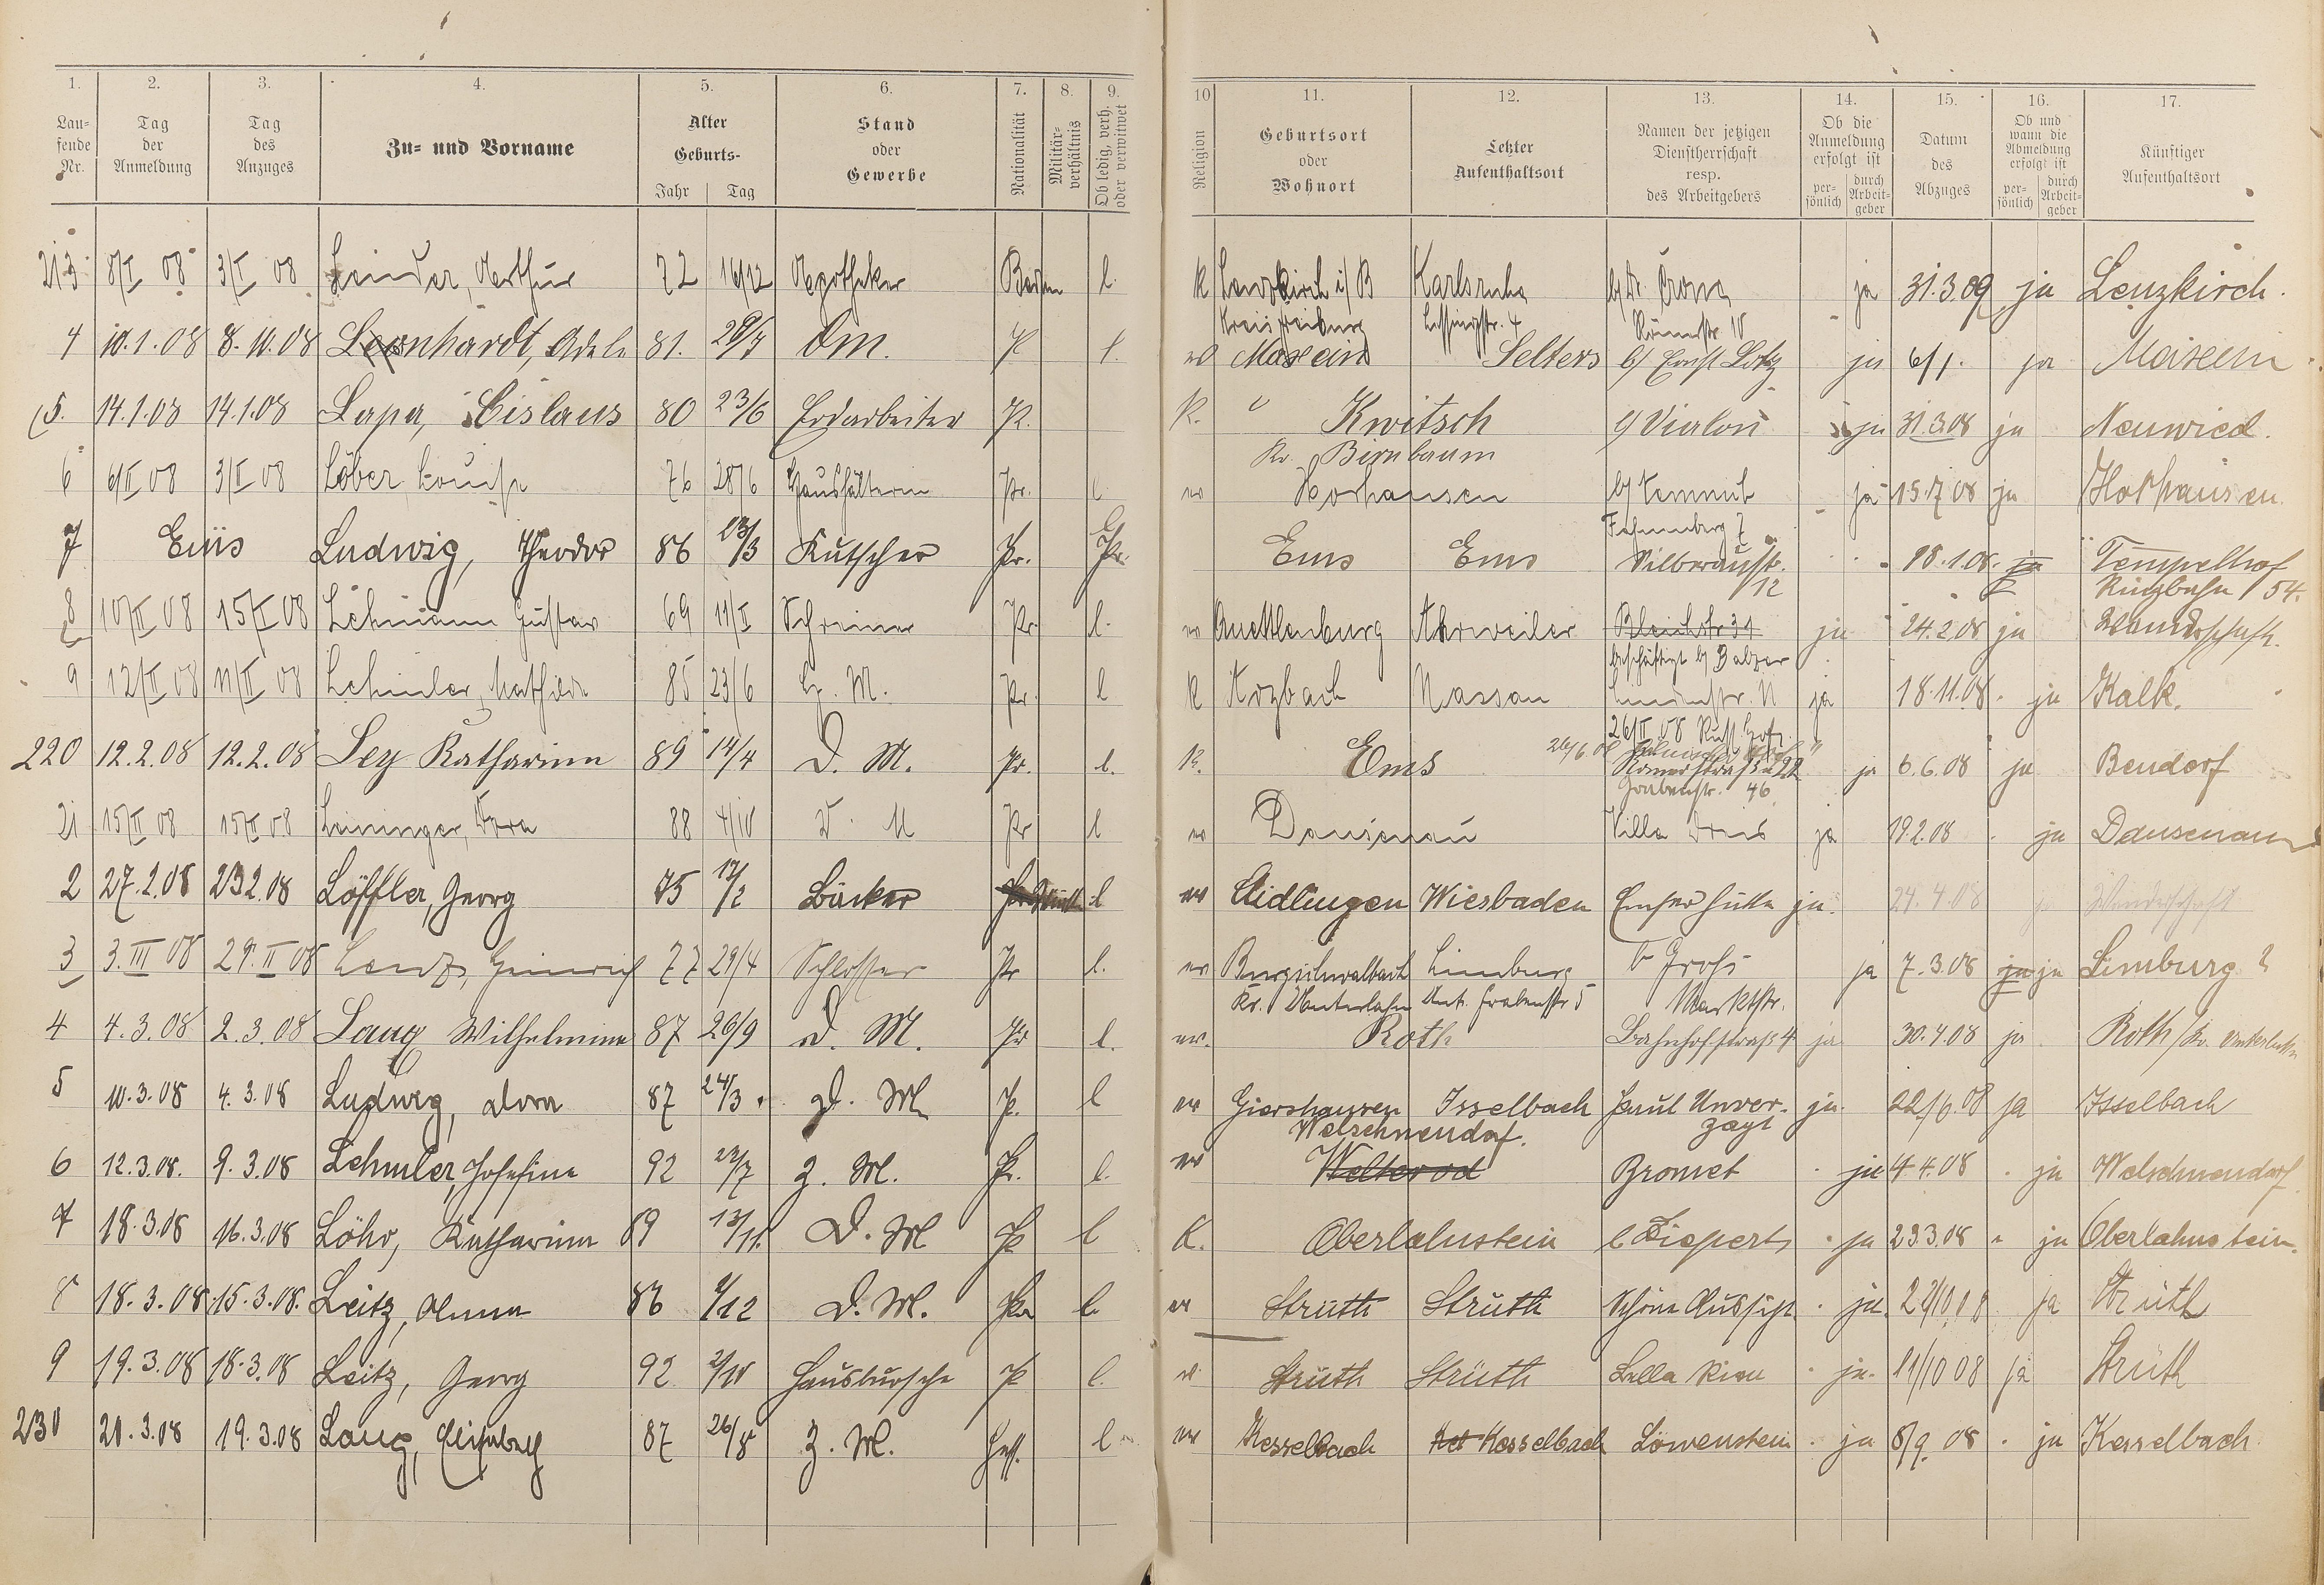 1. 2. 3. 4. 5. 6. 7. 8. 9. 10 11. 12. 13. 14. 15. 16. 17.
Lau-
fende
Nr.
Tag
der
Anmeldung
Tag
des
Anzuges
Zu- und Vorname
Alter
Geburts-
Jahr Tag
Stand
oder
Gewerbe
Nationalität
Militär-
verhältnis
Ob ledig, verh.
oder verwitwet
Religion
Geburtsort
oder
Wohnort
Letzter
Aufenthaltsort
Namen der jetzigen
Dienstherrschaft
resp.
des Arbeitgebers
Ob die
Anmeldung
erfolgt ist
per-
sönlich
durch
Arbeit-
geber
Datum
des
Abzuges
Ob und
wann die
Abmeldung
erfolgt ist
per-
sönlich
durch
Arbeit-
geber
Künftiger
Aufenthaltsort
213 8/I 08 3/I 08 Leinder, Arthur 72 16/12 Apotheker Baden l. K Lenzkirch i/B Karlsruhe b/ Dr. ja 31.3.09 ja Lenzkirch.
Kreis Freiburg Lessingstr. 4 Römerstr. 10
4 10.1.08 8.10.08 Leonhardt, Adele 81. 29/7 P l. Maxsain Selters b/ Ernst Lotz ja 6/1. ja Maxsein
5. 14.1.08 14.1.08 Lapa, Cislaus 80 23/6 Erdarbeiter Pr. K. Kwitsch b/ Vialon ja 31.3.08 ja Neuwied.
Kr. Birnbaum
6 6/II 08 3/II 08 Löber Louise 76 28/6 Haushälterin Pr. l. ev Horhausen b/ ja 15.7.08 ja Horhausen
7 Ems Ludwig, Theodor 86 23/3 Kutscher Pr. Ems Ems Silberaustr. 18.1.08. ja Tempelhof
12 Ringbahn 54.
8 10/II 08 15/I 08 Lehmann Gustav 69 11/II Schreiner Pr. l. ev Quedlenburg Ahrweiler Bleichstr 31 ja 24.2.08 ja Wanderschaft.
beschäftigt b/ Balzer
9 12/II 08 11/II 08 Lehmler, Mathilde 85 23/6 Z. M. Pr. l K Arzbach Nassau ja 18.11.08. ja Kalk.
26/II 08 Russ. Hof.
220 12.2.08 12.2.08 Ley Katharina 89 14/4 D. M. Pr. l. K. Ems 26/6 08 Römerstrasse 22 ja 6.6.08 ja Bendorf
Grabenstr. 46
21 15/II 08 15/II 08 Leininger, Dora 88 4/10 D. M Pr l ev Dausenau Villa ja 19.2.08 ja Dausenau
2 27.2.08 23.2.08 Löffler, Georg 75 17/2 Bäcker l ev Aidlingen Wiesbaden Emser Hütte ja. 24.4.08 ja Wanderschaft
3 3.III 08 29.II 08 Lenz, Heinrich 77 29/4 Schlosser Pr l. ev Burgschwalbach Limburg b Gross ja 7.3.08 ja ja Limburg ?
Kr. Unterlahn Unt. Grabenstr 5 Marktstr.
4 4.3.08 2.3.08 Lang Wilhelmine 87 26/9 D. M. Pr l. ev. Roth Bahnhofstrasse 4 ja 30.4.08 ja Roth/Kr. Unterlahn
5 10.3.08 4.3.08 Ludwig, Dora 87 24/3. D. M P. l ev Giershausen Isselbach Paul Unver- ja 22/6.08 ja Isselbach
Welschneudorf. zagt
6 12.3.08. 9.3.08 Lehmler, Josefine 92 23/7 Z. M. Pr. l. ev Welterod Bromet ja 4.4.08 ja Welschneudorf
7 18.3.08 16.3.08 Löhr, Katharina 89 13/11. D. M P l K. Oberlahnstein b Siepert ja 23.3.08 ja Oberlahnstein.
8 18.3.08 15.3.08. Leitz, Anna 86 9/12 D. M. Pr l. ev Strüth Strüth Schöne Aussicht. ja. 22/10.08 ja Strüth
9 19.3.08 18.3.08 Leitz, Georg 92 2/10 Hausbursche P l. ev. Strüth Strüth Bella Riva ja. 11/10 08 ja Strüth
230 21.3.08 19.3.08 Lang, Elisabeth 87 26/8 Z. M. Hess. l ev Kesselbach Kesselbach Löwenstein ja 8/9 08 ja Kesselbach.